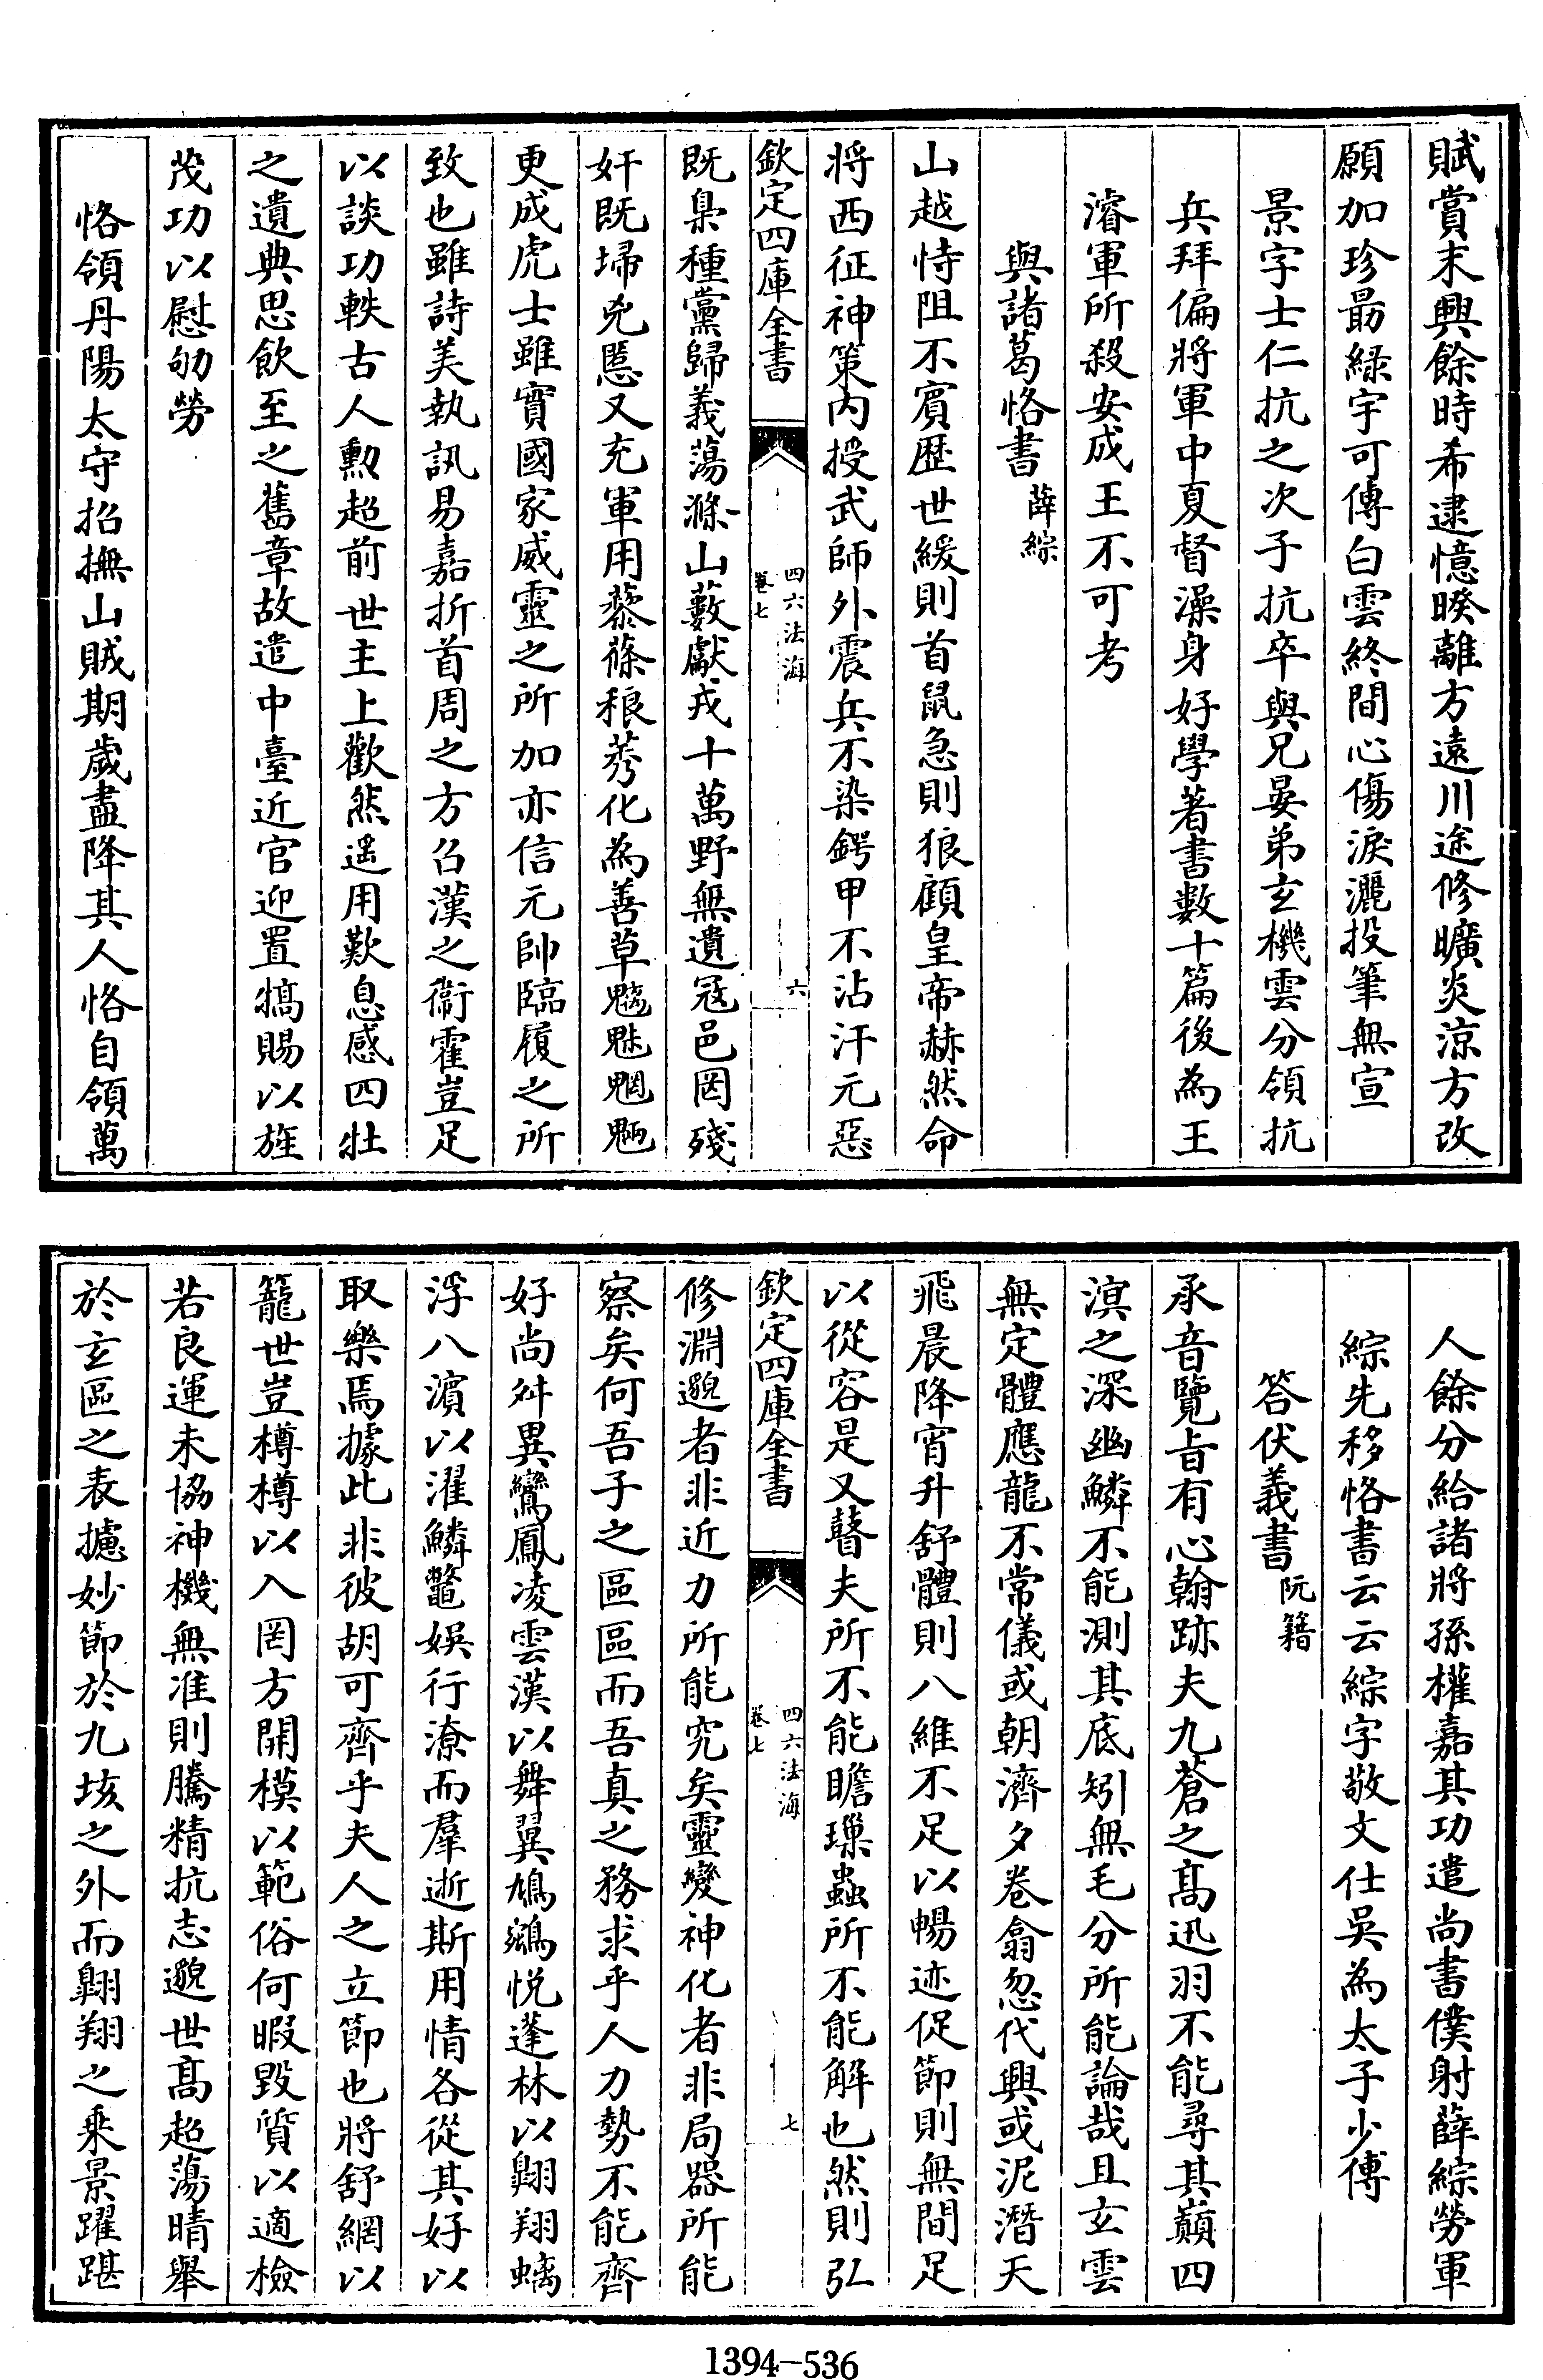 賦賞末興餘時希逮憶暌離方遠川途修曠炎涼方改
願加珍勗緑字可傳白雲終間心傷淚灑投筆無宣
景字士仁抗之次子抗卒與兄晏弟玄機雲分領抗
兵拜偏將軍中夏督澡身好學著書數十篇後為王
濬軍所殺安成王不可考
與諸葛恪書 薛綜
山越恃阻不賔歴世緩則首鼠急則狼顧皇帝赫然命
將西征神策内授武師外震兵不染鍔甲不沾汗元惡
欽定四庫全書
四六法海
卷七
六
既梟種黨歸義蕩滌山藪獻戎十萬野無遺冦邑罔殘
奸既埽兇慝又充軍用藜蓧稂莠化為善草魑魅魍魎
更成虎士雖實國家威靈之所加亦信元帥臨履之所
致也雖詩美執訊易嘉折首周之方召漢之衛霍豈足
以談功軼古人勲超前世主上歡然遥用歎息感四牡
之遺典思飲至之舊章故遣中臺近官迎置犒賜以旌
茂功以慰劬勞
恪領丹陽太守招撫山賊期歲盡降其人恪自領萬
人餘分給諸將孫權嘉其功遣尚書僕射薛綜勞軍
綜先移恪書云云綜字敬文仕吳為太子少傅
答伏義書 阮籍
承音覽㫖有心翰跡夫九蒼之髙迅羽不能尋其巔四
溟之深幽鱗不能測其底矧無毛分所能論哉且玄雲
無定體應龍不常儀或朝濟夕卷翕忽代興或泥潛天
飛晨降宵升舒體則八維不足以暢迹促節則無間足
以從容是又瞽夫所不能瞻璅蟲所不能解也然則弘
欽定四庫全書
四六法海
卷七
七
修淵邈者非近力所能究矣靈變神化者非局器所能
察矣何吾子之區區而吾真之務求乎人力勢不能齊
好尚舛異鸞鳳凌雲漢以舞翼鳩鷃悦蓬林以翺翔螭
浮八濵以濯鱗鼈娛行潦而羣逝斯用情各從其好以
取樂焉據此非彼胡可齊乎夫人之立節也將舒網以
籠世豈樽樽以入罔方開模以範俗何暇毀質以適檢
若良運未協神機無准則騰精抗志邈世髙超蕩晴舉
於玄區之表攄妙節於九垓之外而翺翔之乘景躍踸
1394-536